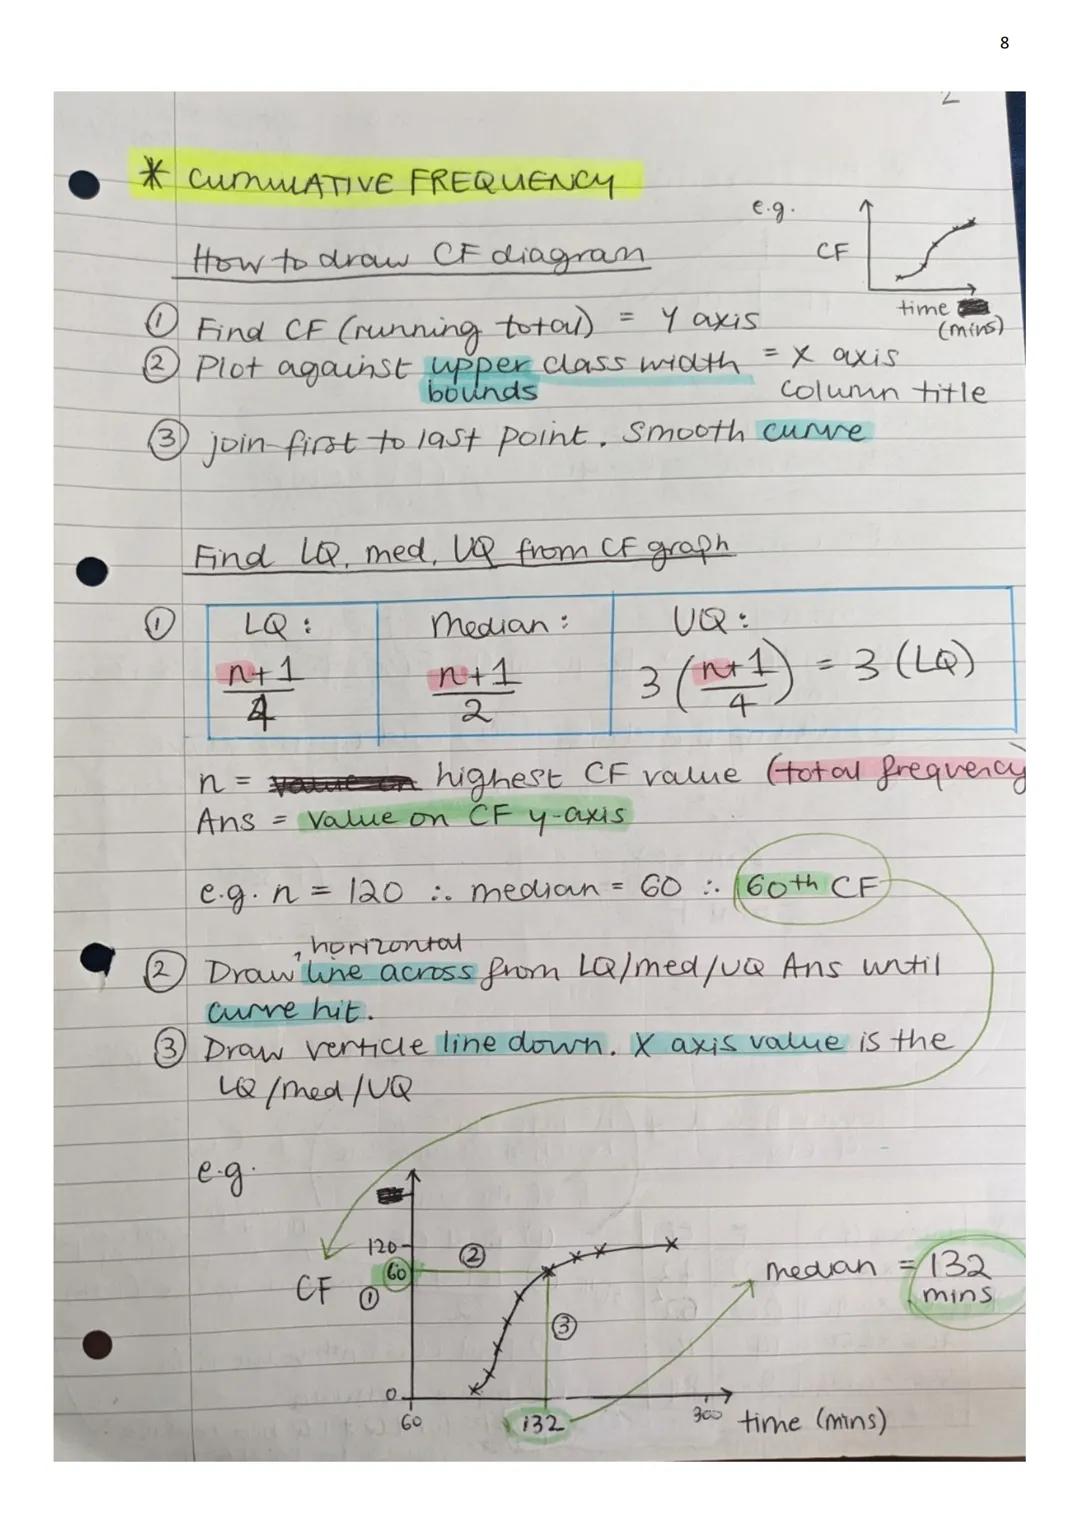 8
2
* CUMULATIVE FREQUENCY
e.g.
CF
time
(mins)
How to draw CF diagram
① Find CF (running total) = Y axis
② Plot against upper class width = X axis
bounds
column title
③ join first to last point. Smooth curve
Find LQ, med, UQ from CF graph
① LQ: Median: UQ:
n+1/4 n+1/2 3(n+1/4) = 3(LQ)
n = highest CF value (total frequency
Ans = value on CF y-axis
e.g. n = 120 ∴ median = 60 ∴ 60th CF
horizontal
② Draw line across from LQ/med/UQ Ans until
curve hit.
③ Draw verticle line down. X axis value is the
LQ/med/UQ
e.g.
120
②
60
CF ①
median = 132
mins
③
0
60
132
300
time (mins)